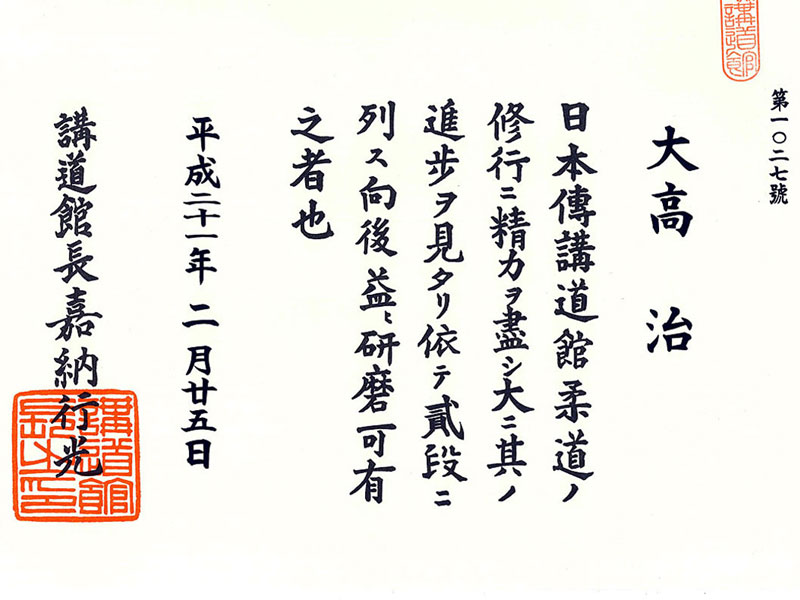 講道館
第一〇二七號
大高 治
日本傳講道館柔道ノ
修行ニ精力ヲ盡シ大ニ其ノ
進歩ヲ見タリ依テ貳段ニ
列ス向後益〻研磨可有
之者也
平成二十一年 二月廿五日
講道館長嘉納行光
講道館長之印